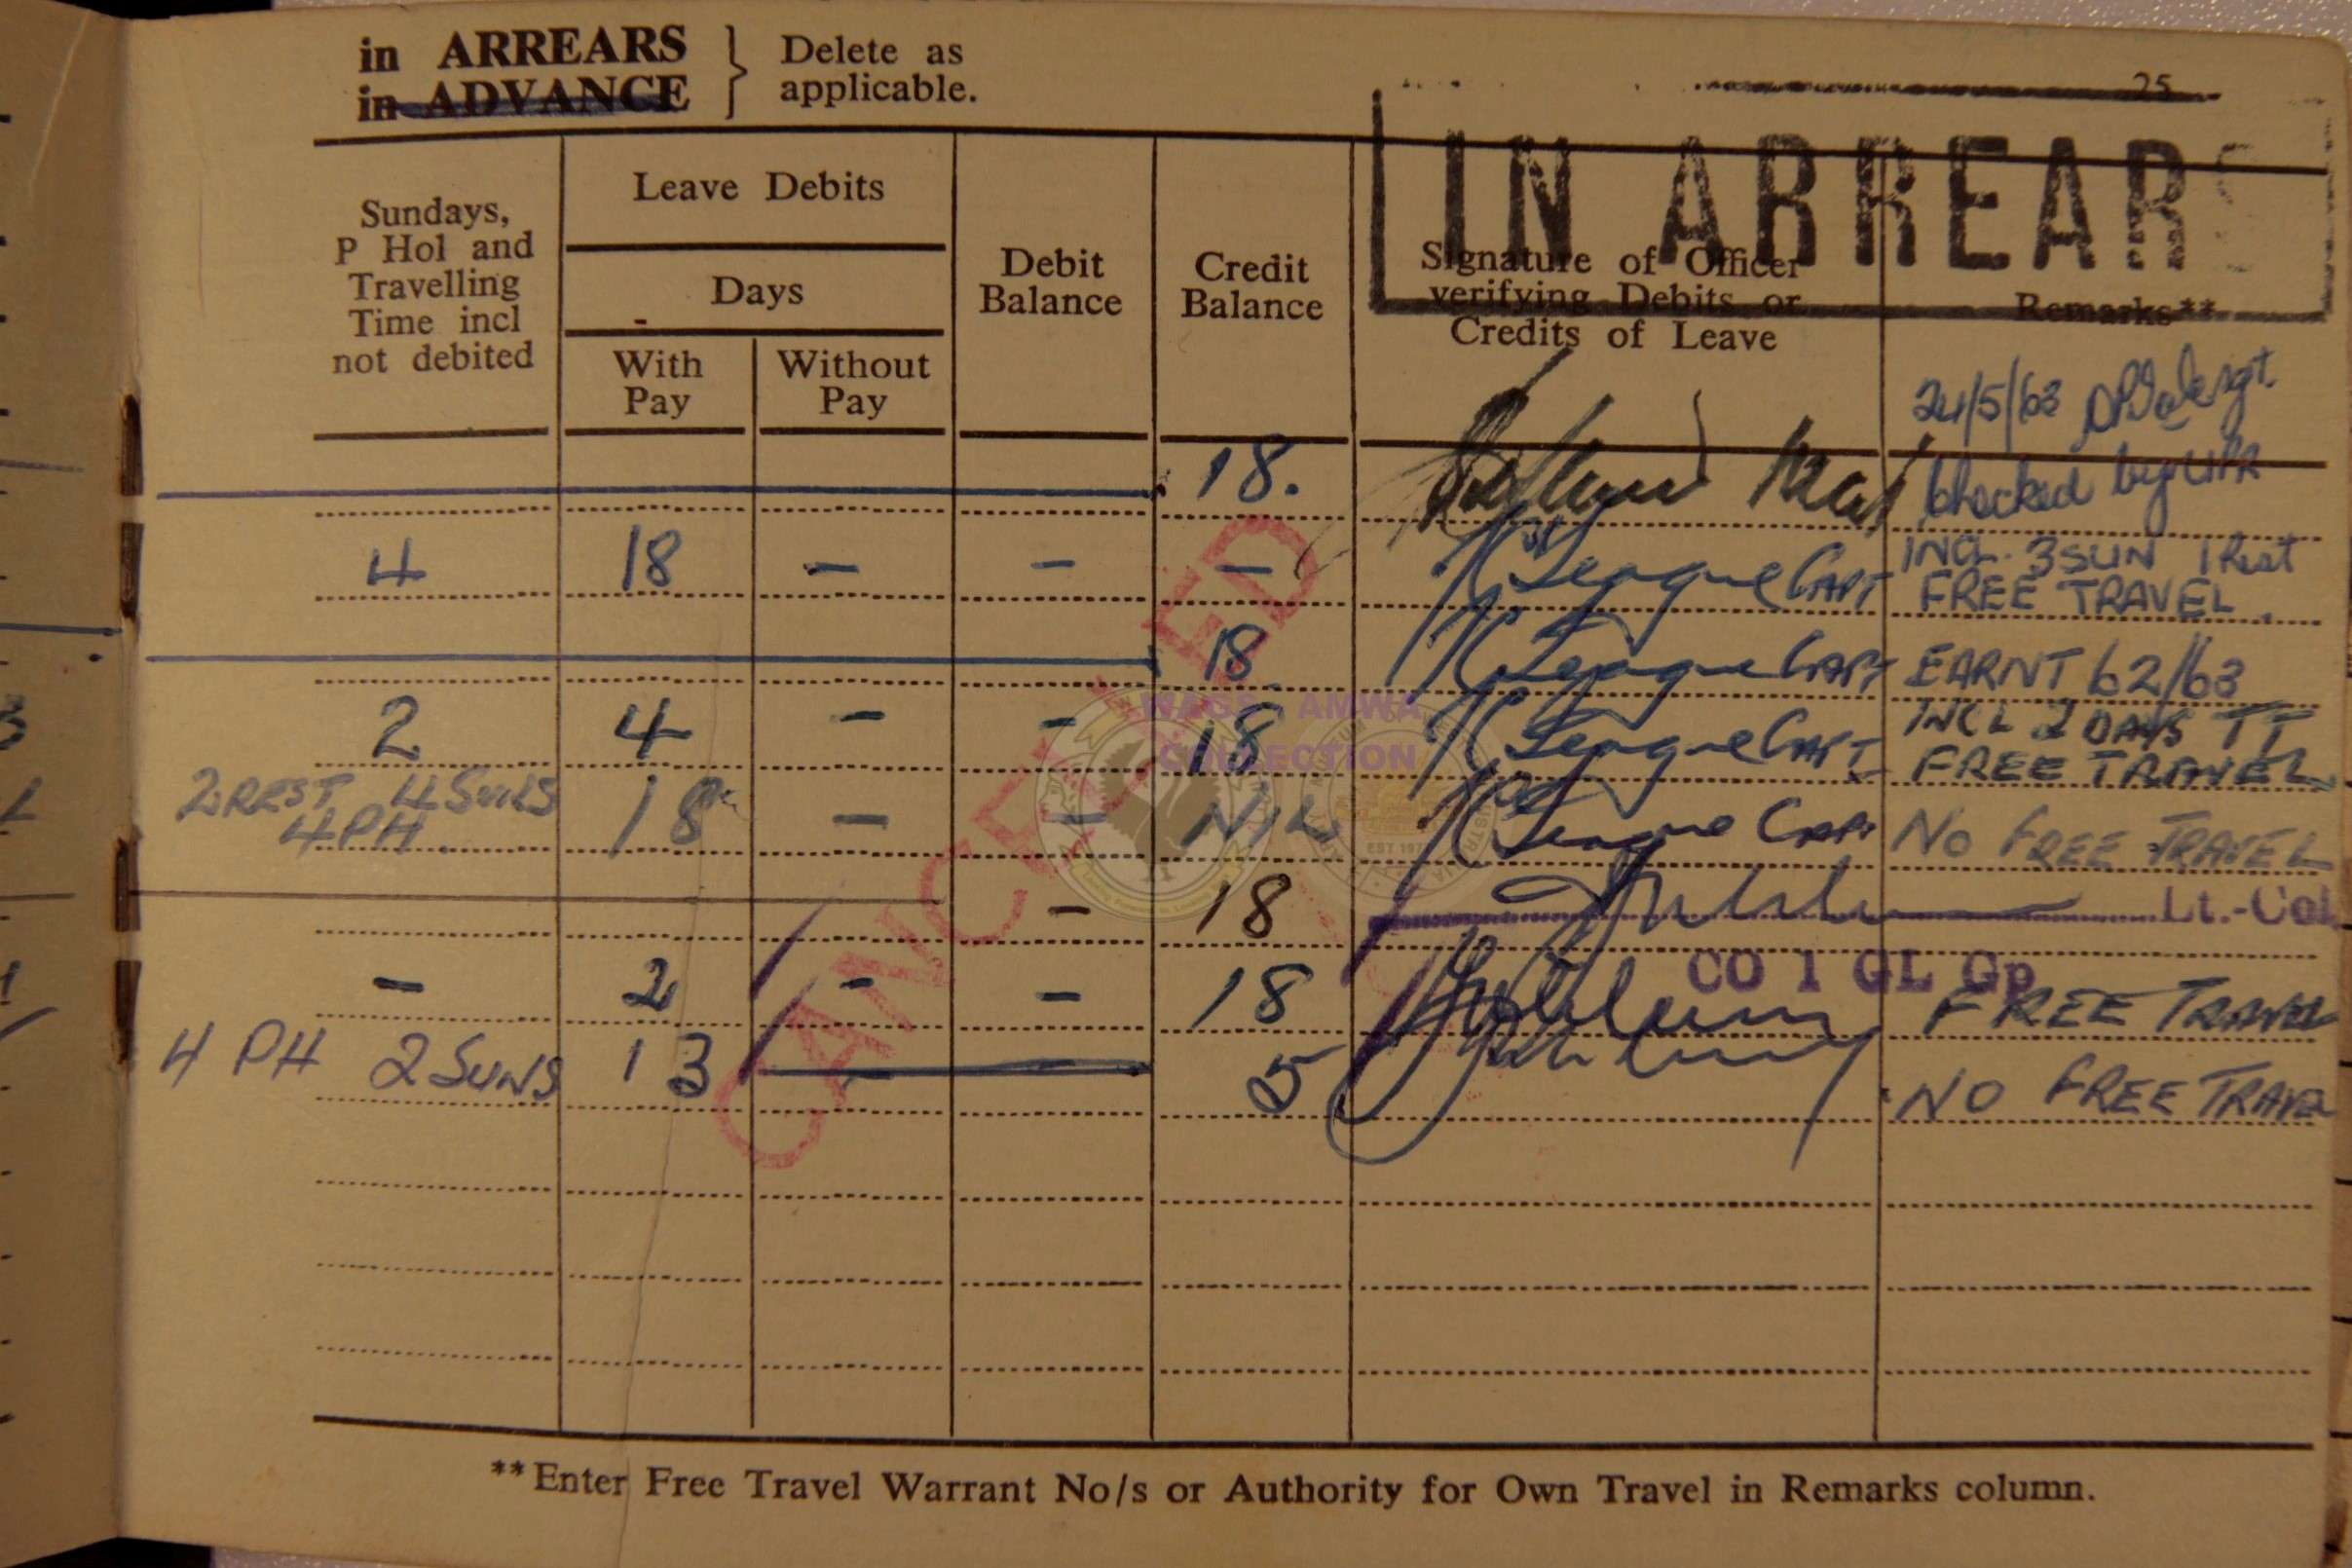 in ARREARS
in ADVANCE
Delete as
applicable.
25
IN ARREARS
Sundays,
P Hol and
Travelling
Time incl
not debited
Leave Debits
Days
With
Pay
Without
Pay
Debit
Balance
Credit
Balance
Signature of Officer
verifying Debits or
Credits of Leave
Remarks**
24/5/63 Sgt.
18. Checked by
4 18 - - - Capt INCL. 3 SUN 1 Rest
FREE TRAVEL.
18 Capt EARNT 62/63
2 4 - - 18 Capt INCL 2 DAYS TT
FREE TRAVEL
2 REST 4 SUNS
4 PH. 18 - - NIL Capt NO FREE TRAVEL
- 18 Lt.-Col
CO 1 GL Gp
- 2 - - 18 FREE TRAVEL
4 PH 2 SUNS 13 - - 5 NO FREE TRAVEL
CANCELLED
WAGGA AMWA
COLLECTION
EST 197
**Enter Free Travel Warrant No/s or Authority for Own Travel in Remarks column.